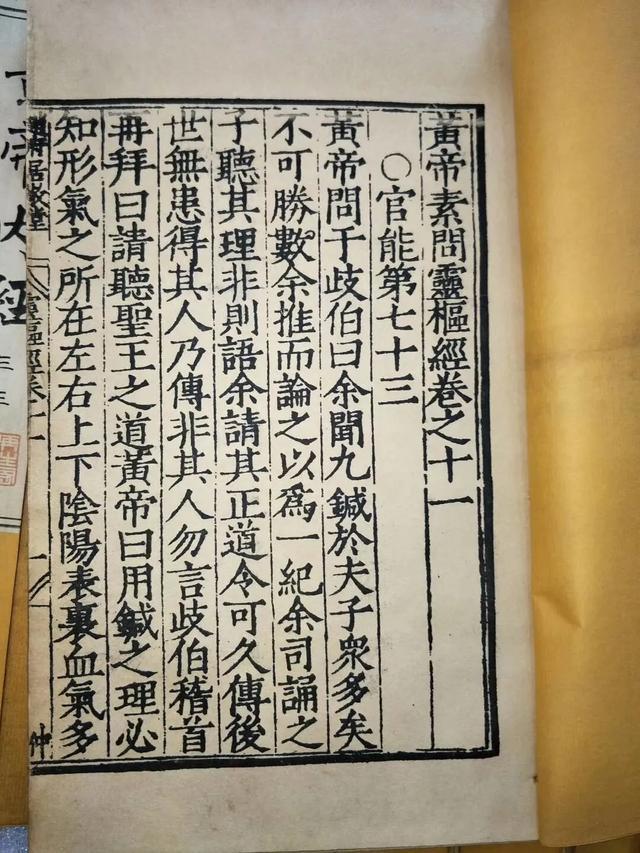 黃帝素問靈樞經卷之十一
○官能第七十三
黃帝問于歧伯曰余聞九鍼於夫子衆多矣
不可勝數余推而論之以爲一紀余司誦之
子聽其理非則語余請其正道令可久傳後
世無患得其人乃傳非其人勿言歧伯稽首
再拜曰請聽聖王之道黃帝曰用鍼之理必
知形氣之所在左右上下陰陽表裏血氣多
居敬堂
靈樞經卷十一
一
仲
經